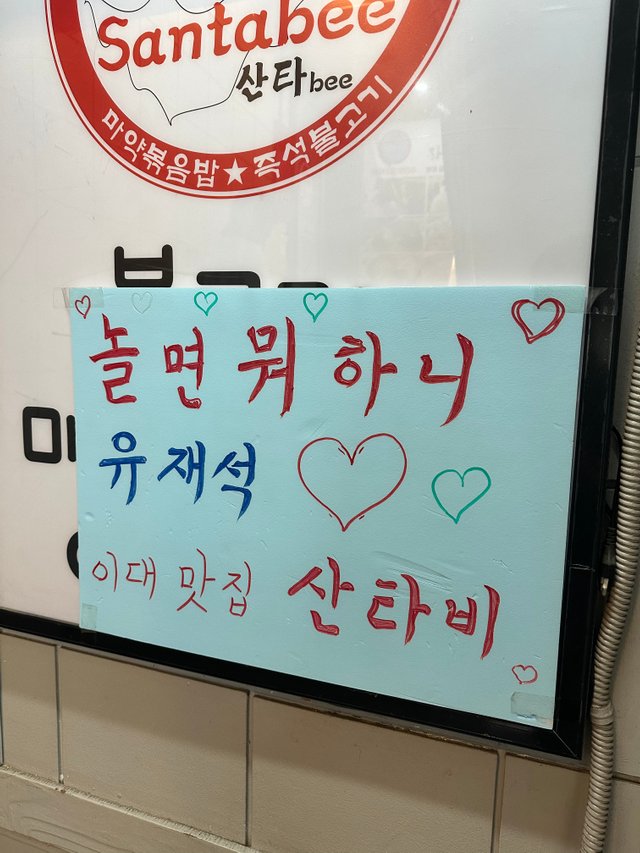 Santabee
산타bee
마약볶음밥★즉석불고기
놀면 뭐 하니
유재석
이대 맛집 산타비